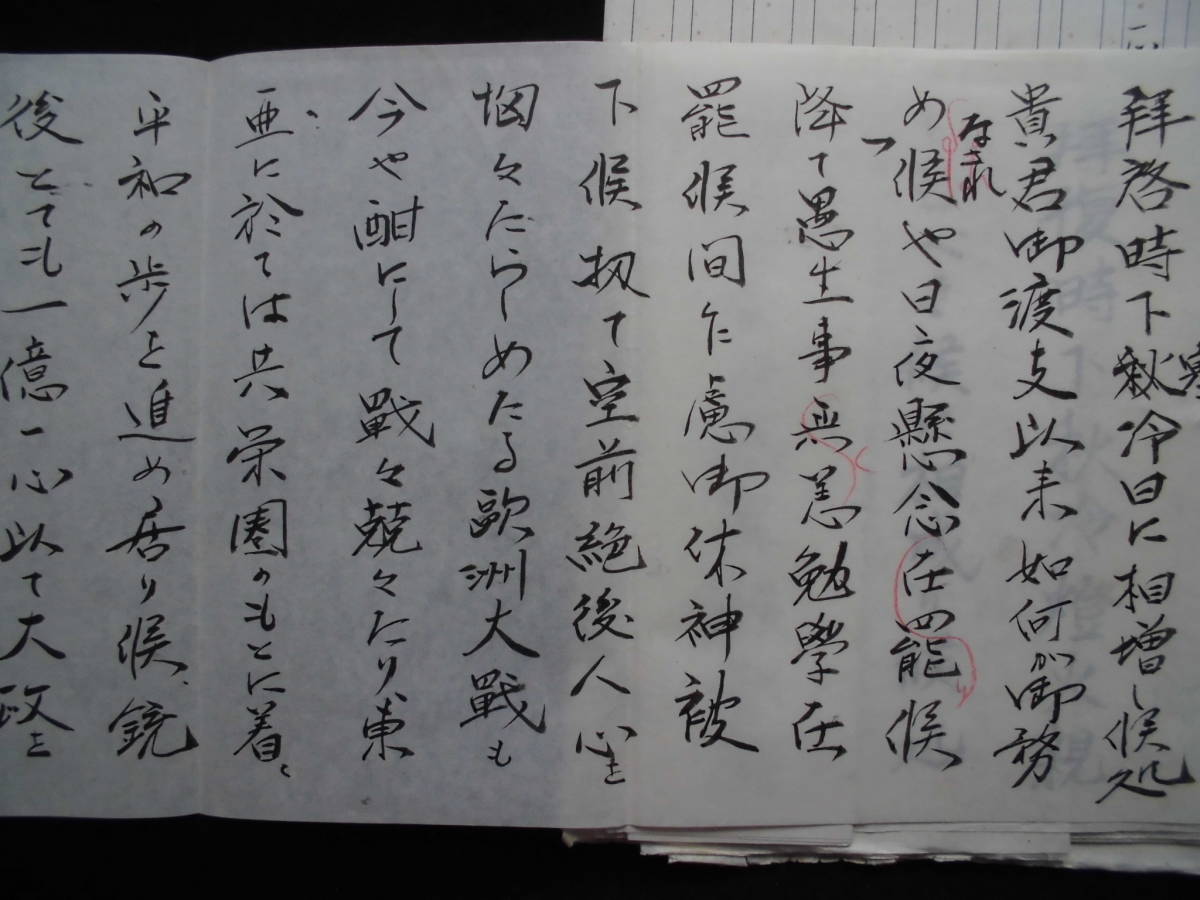 拝啓時下秋冷日に相増し候処
貴君御渡支以来如何が御務
なされ
め候や日夜懸念在罷候
降て愚生事無恙勉學在
罷候間乍慮御休神被
下候扨て空前絶後人心を
悩々たらしめたる歐洲大戰も
今や酣にして戰々兢々たり、東
亜に於ては共栄圏のもとに着々
平和の歩を進め居り候、銃
後とても一億一心以て大政を